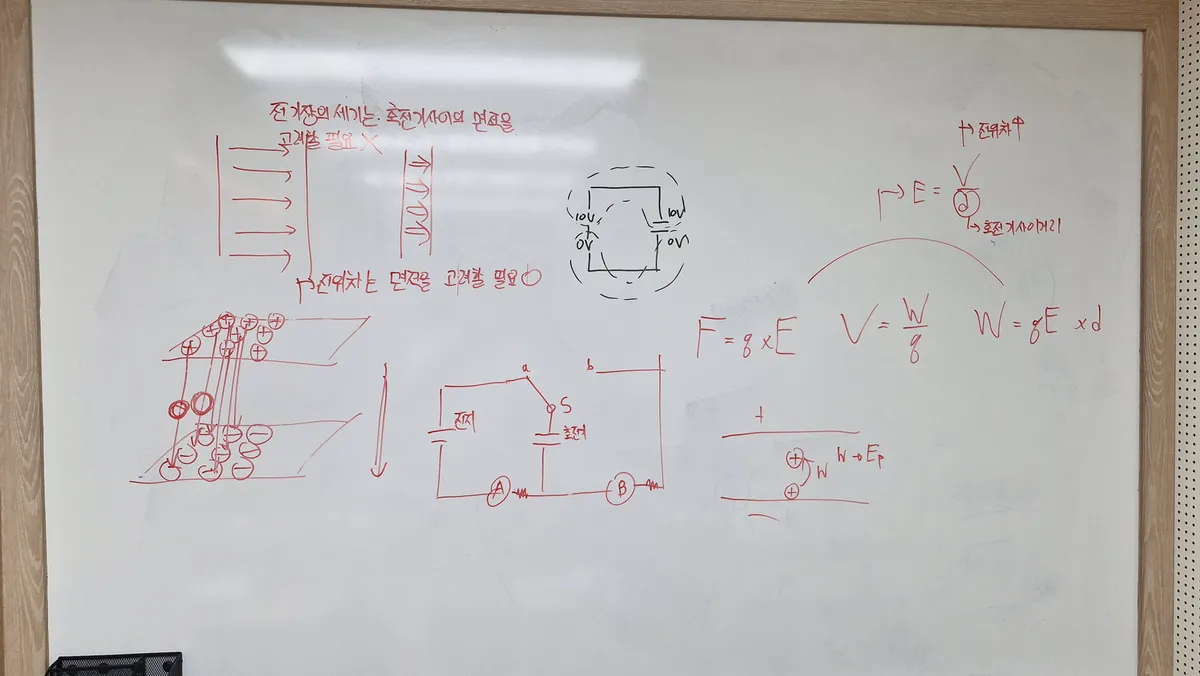 전기장의 세기는 축전기사이의 면적을
고려할 필요 X
전위차는 면적을 고려할 필요 O
10V
0V
10V
0V
→ 전위차↑
E = V/d
→ 축전기사이거리
F = q x E
V = W/q
W = qE x d
+ + + + + + + +
a
b
S
전지
축전기
A
B
+
+
W
W → Ep
+
−